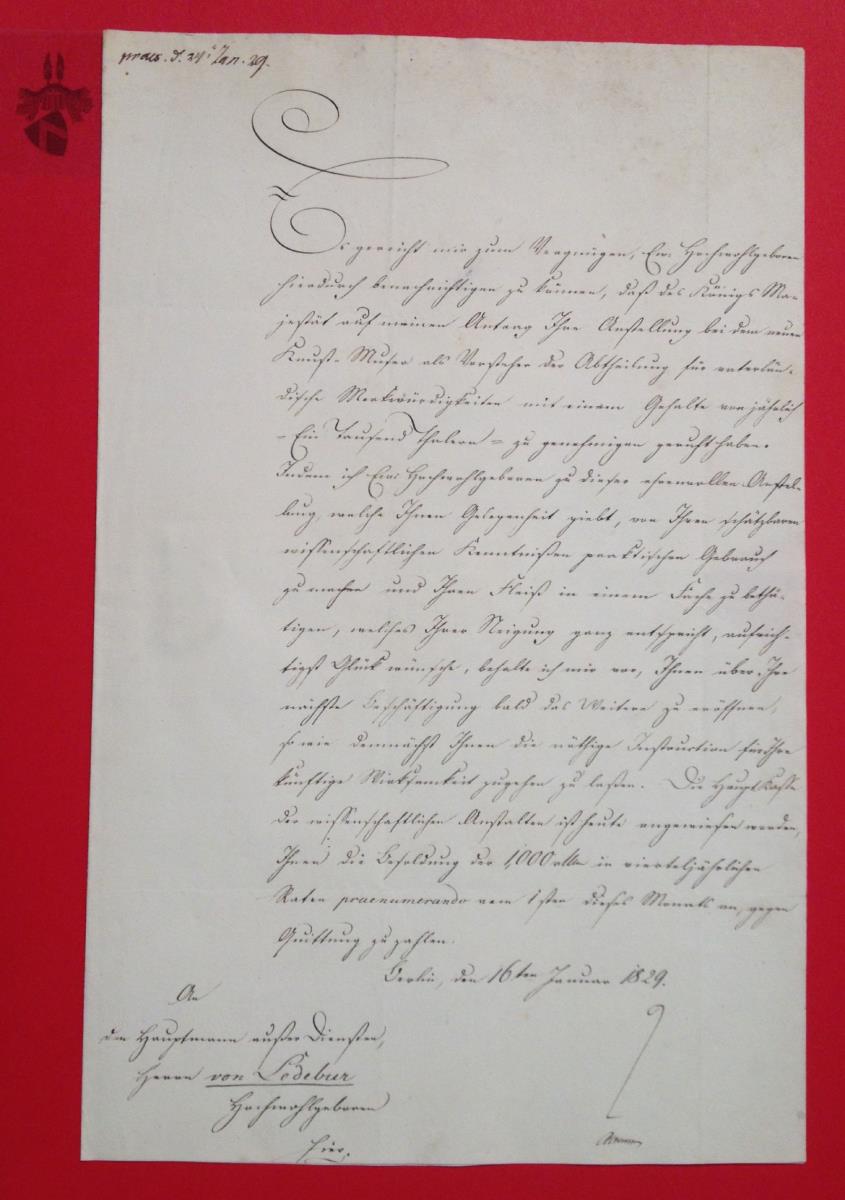 praes. d. 24t Jan. 29.
Es gereicht mir zum Vergnügen, Ew. Hochwohlgeboren
hierdurch benachrichtigen zu können, daß des Königs Ma-
jestät auf meinen Antrag Ihre Anstellung bei dem neuen
Kunst-Museo als Vorsteher der Abtheilung für vaterlän-
dische Merkwürdigkeiten mit einem Gehalte von jährlich
= Ein Tausend Thalern = zu genehmigen geruht haben.
Indem ich Ew. Hochwohlgeboren zu dieser ehrenvollen Anstel-
lung, welche Ihnen Gelegenheit giebt, von Ihren schätzbaren
wissenschaftlichen Kenntnißen praktischen Gebrauch
zu machen und Ihren Fleiß in einem Fache zu bethä-
tigen, welches Ihrer Neigung ganz entspricht, aufrich-
tigst Glück wünsche, behalte ich mir vor, Ihnen über Ihre
nächste Beschäftigung bald das Weitere zu eröffnen,
so wie demnächst Ihnen die nöthige Instruction für Ihre
künftige Wirksamkeit zugehen zu laßen. Die Haupt Kasse
der wissenschaftlichen Anstalten ist heute angewiesen worden,
Ihnen die Besoldung der 1,000 rthlr in vierteljährlichen
Raten praenumerando vom 1sten dieses Monats an, gegen
Quittung zu zahlen.
Berlin, den 16ten Januar 1829.
An
den Hauptmann außer Diensten,
Herrn von Ledebur
Hochwohlgeboren
hier.